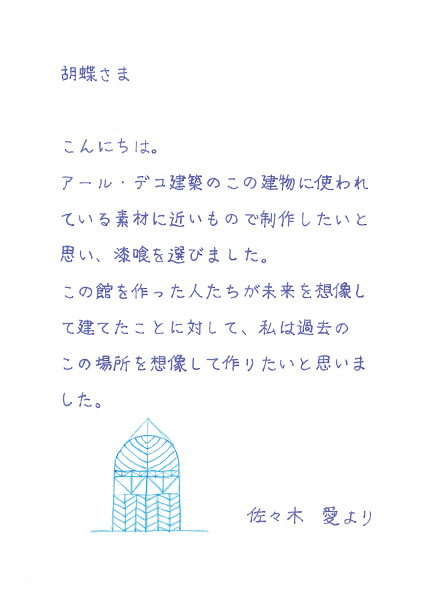 胡蝶さま
こんにちは。
アール・デコ建築のこの建物に使われ
ている素材に近いもので制作したいと
思い、漆喰を選びました。
この館を作った人たちが未来を想像し
て建てたことに対して、私は過去の
この場所を想像して作りたいと思いま
した。
佐々木 愛より